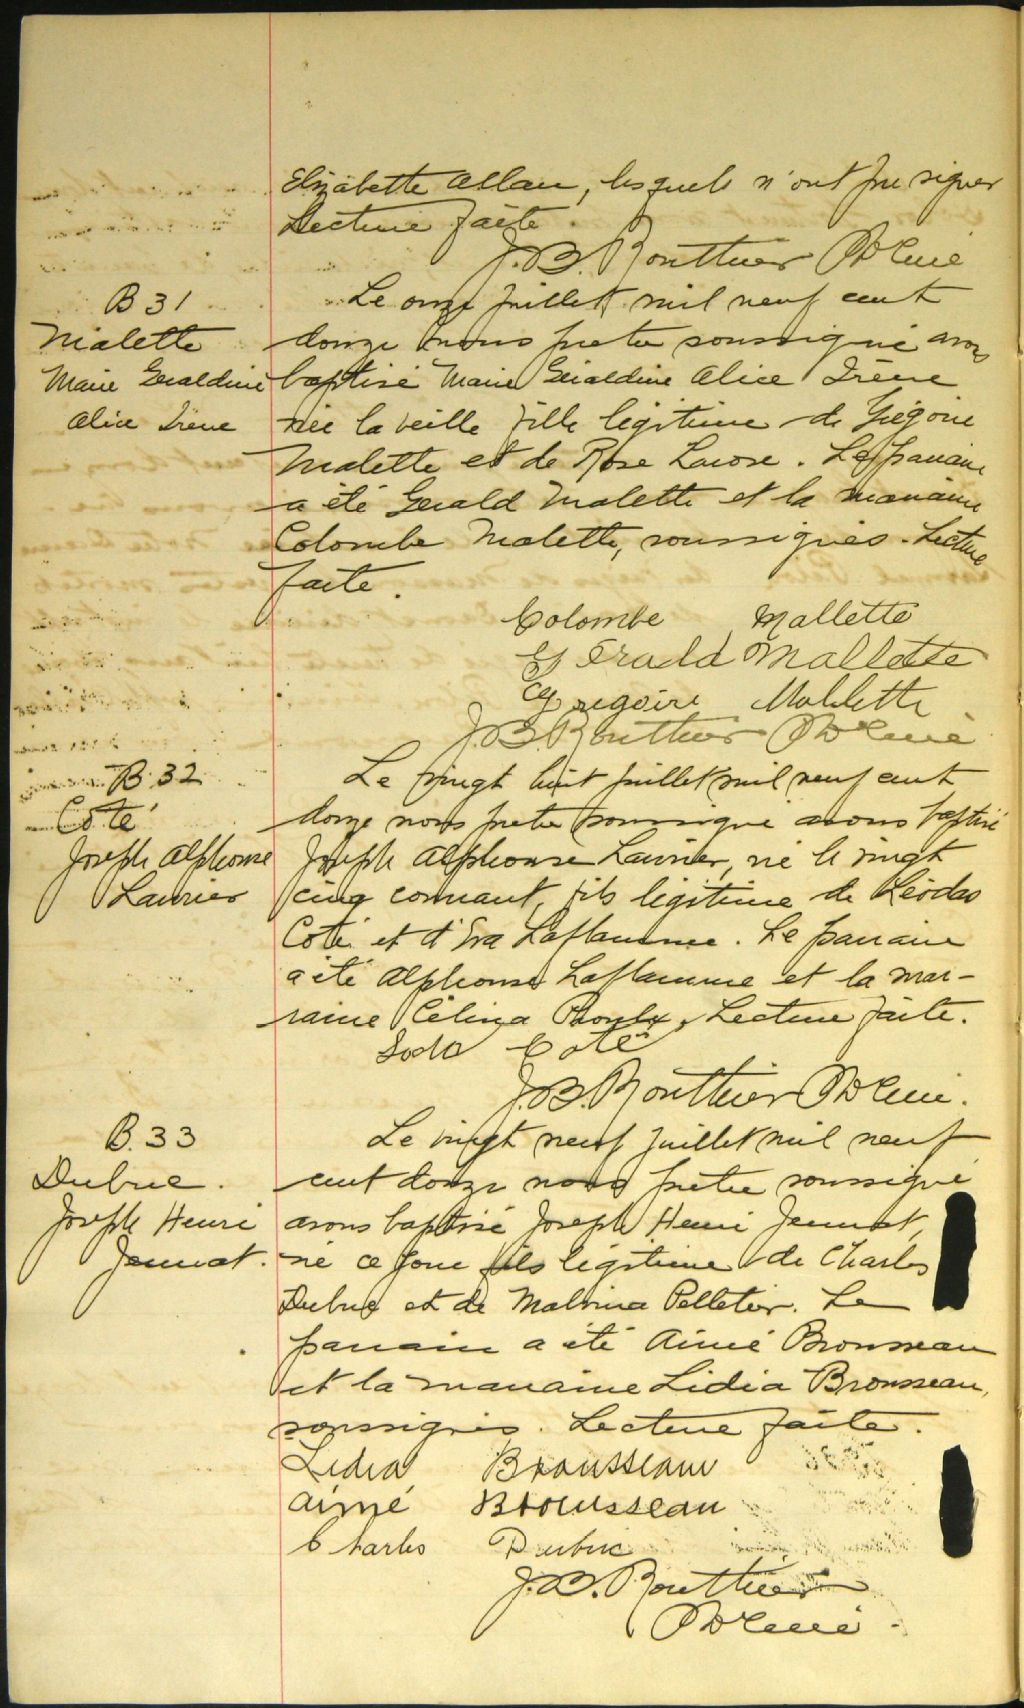 Elizabette Allan, lesquels n'ont pu signer
Lecture faite.
J.B. Routhier Ptre Curé
B 31
Malette
Marie Géraldine
Alice Irène
Le onze juillet mil neuf cent
douze nous prêtre soussigné avons
baptisé Marie Géraldine Alice Irène
née la veille fille légitime de Grégoire
Malette et de Rose Larose. Le parrain
a été Gerald Malette et la marraine
Colombe Malette, soussignés. Lecture
faite.
Colombe Mallette
Gérald Mallette
Grégoire Mallette
J.B. Routhier Ptre Curé
B 32
Coté
Joseph Alphonse
Laurier
Le vingt huit juillet mil neuf cent
douze nous prêtre soussigné avons baptisé
Joseph Alphonse Laurier, né le vingt
cinq courant, fils légitime de Léodas
Coté et d'Eva Laflamme. Le parrain
a été Alphonse Laflamme et la mar-
raine Célina Proulx, Lecture faite.
Coté
J.B. Routhier Ptre Curé.
B. 33
Dubuc.
Joseph Henri
Jeunat.
Le vingt neuf juillet mil neuf
cent douze nous prêtre soussigné
avons baptisé Joseph Henri Jeunat,
né ce jour fils légitime de Charles
Dubuc et de Malvina Pelletier. Le
parrain a été Aimé Brousseau
et la marraine Lidia Brousseau,
soussignés. Lecture faite.
Lidia Brousseau
Aimé Brousseau
Charles Dubuc
J.B. Routhier
Ptre Curé.